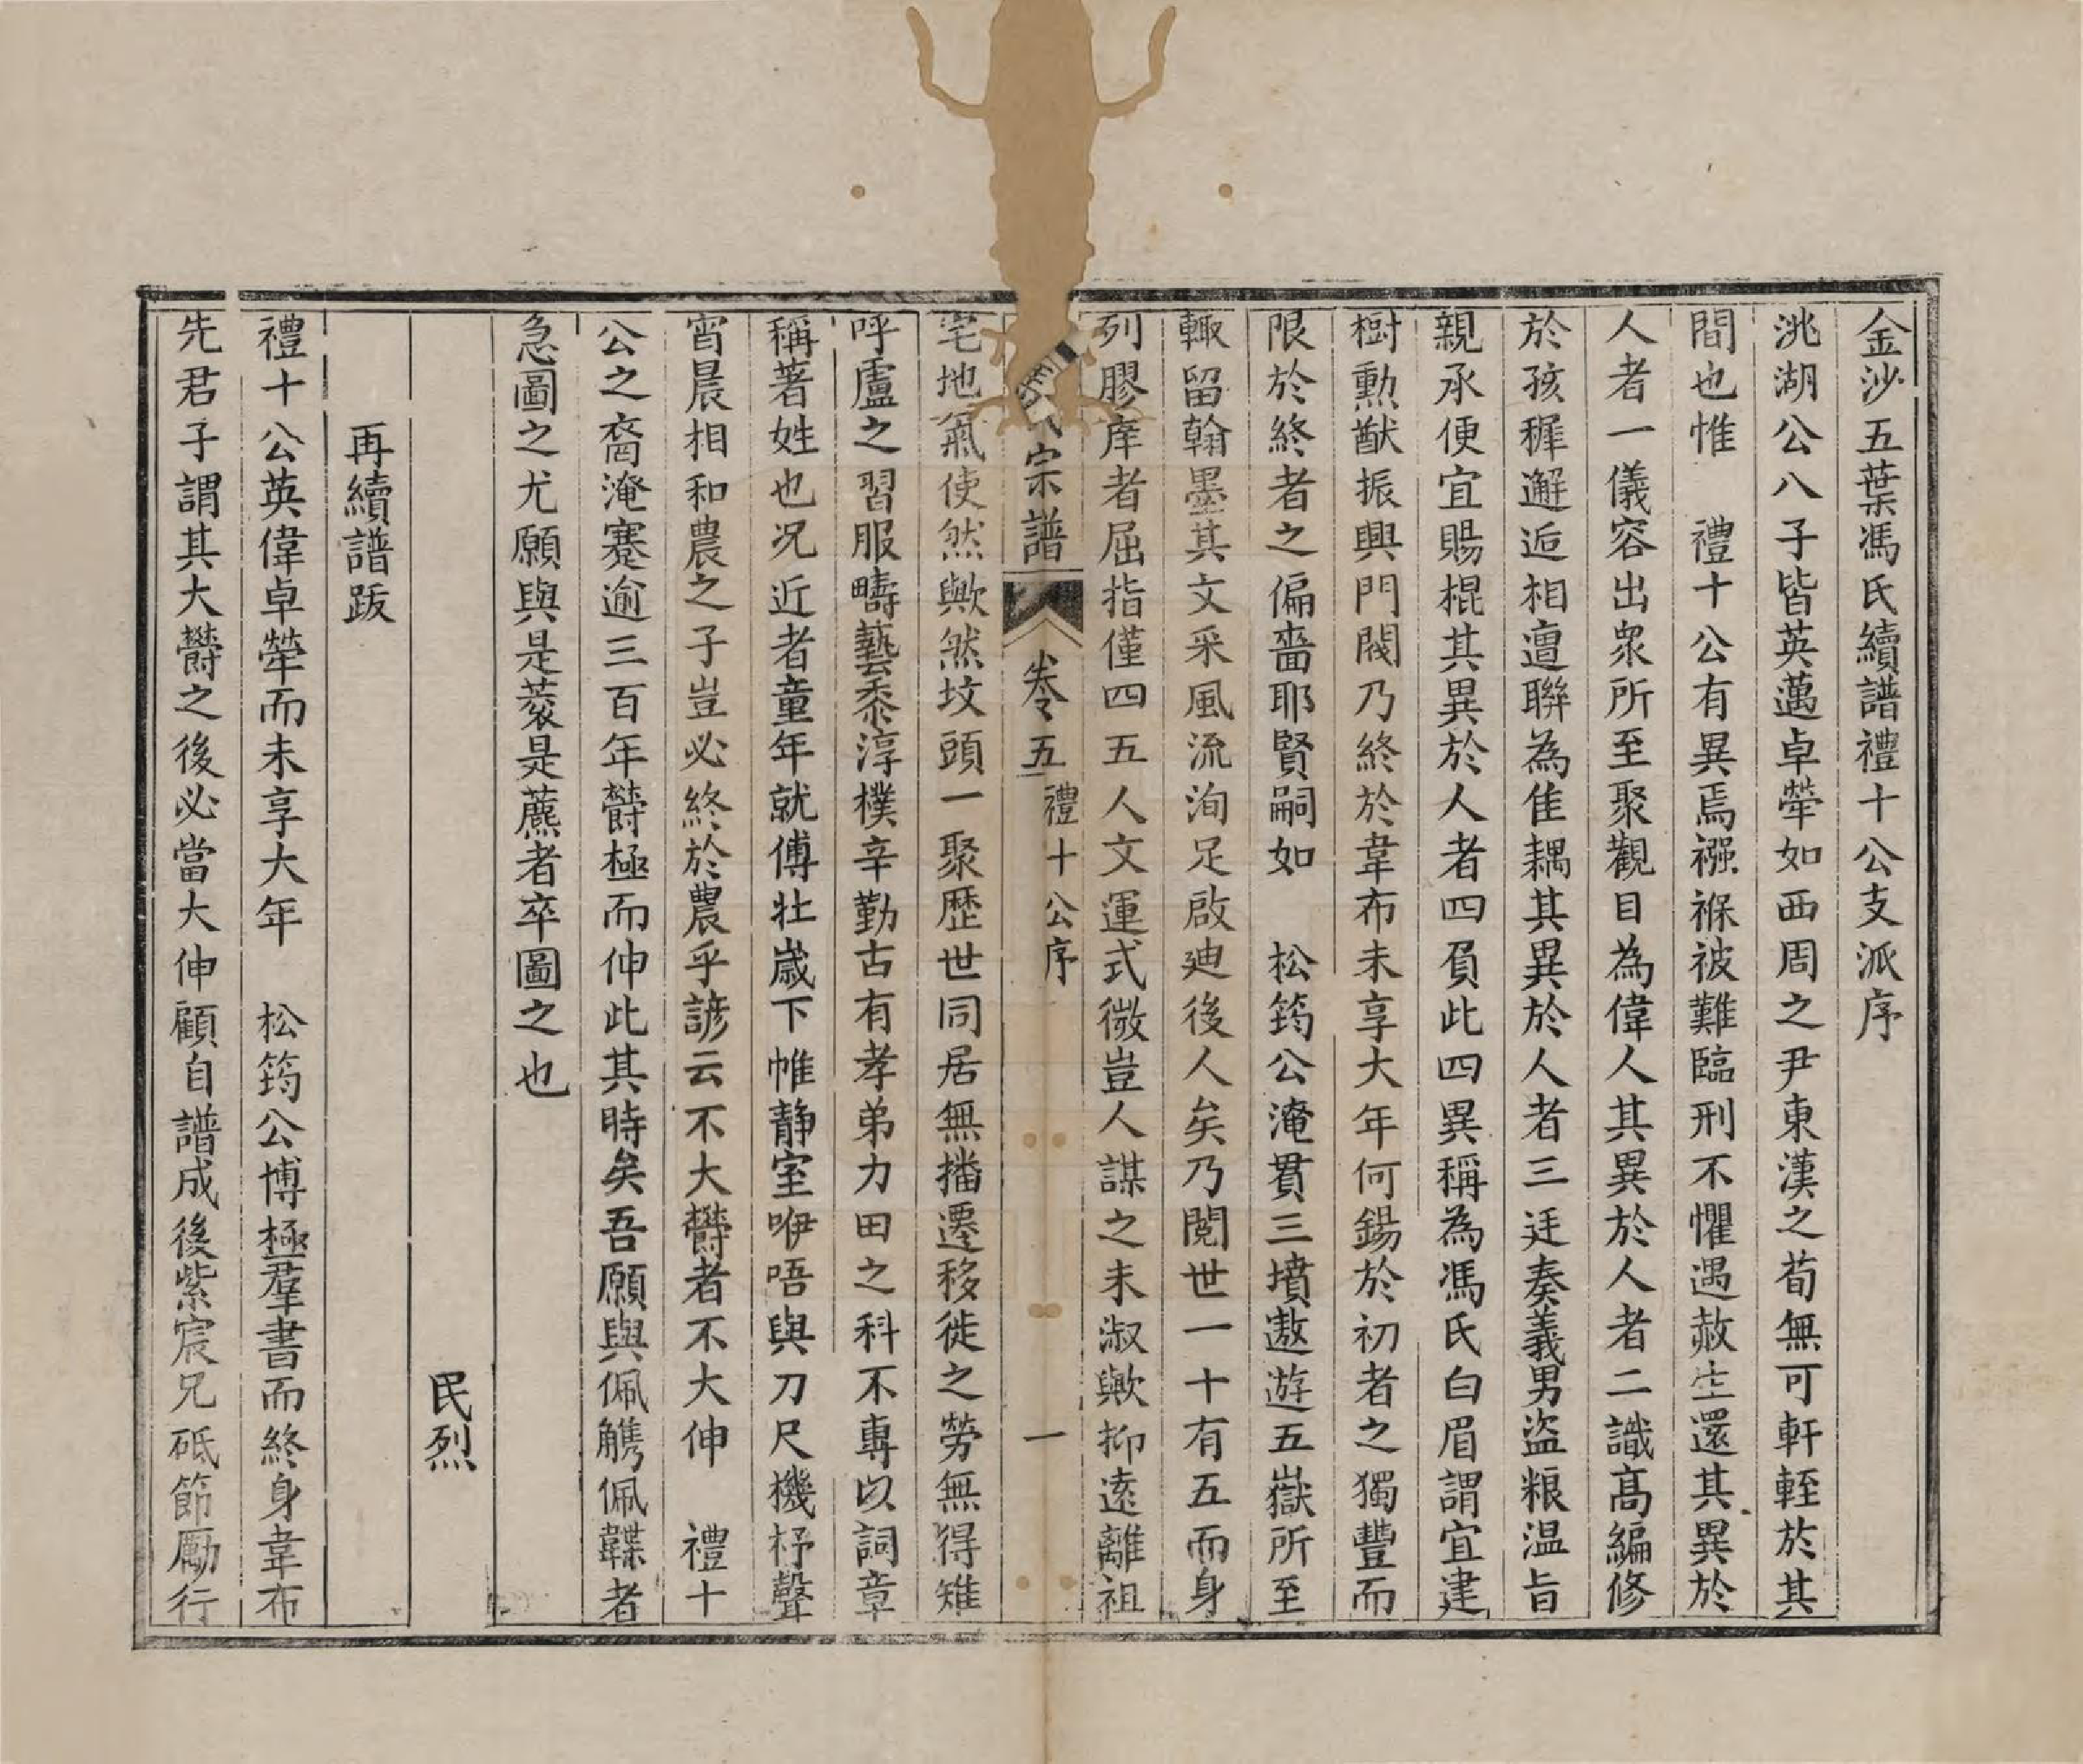 金沙五葉馮氏續譜禮十公支派序
洮湖公八子皆英邁卓犖如西周之尹東漢之荀無可軒輊於其
間也惟 禮十公有異焉襁褓被難臨刑不懼遇赦生還其異於
人者一儀容出衆所至聚觀目為偉人其異於人者二識高編修
於孩穉邂逅相遭聯為佳耦其異於人者三廷奏義男盜粮温旨
親承便宜賜棍其異於人者四負此四異稱為馮氏白眉謂宜建
樹勲猷振興門閥乃終於韋布未享大年何錫於初者之獨豐而
限於終者之偏嗇耶賢嗣如 松筠公淹貫三墳遨遊五嶽所至
輙留翰墨其文采風流洵足啟廸後人矣乃閱世一十有五而身
列膠庠者屈指僅四五人文運式微豈人謀之未淑歟抑遠離祖
宗譜 卷五 禮十公序 一
宅地氣使然歟然坟頭一聚歷世同居無播遷移徙之勞無得雉
呼盧之習服疇藝黍淳樸辛勤古有孝弟力田之科不專以詞章
稱著姓也况近者童年就傅壯歲下帷靜室咿唔與刀尺機杼聲
宵晨相和農之子豈必終於農乎諺云不大欝者不大伸 禮十
公之裔淹蹇逾三百年欝極而伸此其時矣吾願與佩觿佩韘者
急圖之尤願與是蓘是藨者卒圖之也
民烈
再續譜跋
禮十公英偉卓犖而未享大年 松筠公博極羣書而終身韋布
先君子謂其大欝之後必當大伸顧自譜成後紫宸兄砥節勵行